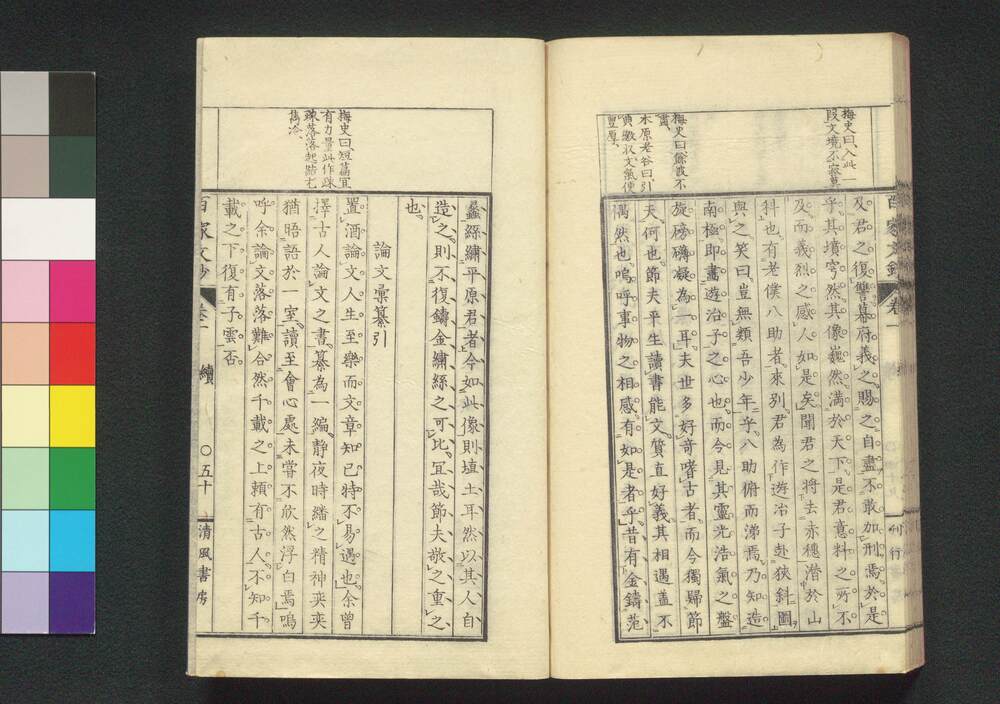 梅史曰、入此一
段文境不寂寞
梅史曰餘波不
盡、
木原老谷曰、引
典數次、文氣便
豐厚、
及君之復讐幕府義之賜之自盡不敢加刑焉於是
乎其墳穹然其像巍然滿於天下是君意料之所不
及而義烈之感人如是矣聞君之將去赤穗潛於山
科也有老僕八助者來別君為作遊冶子赴狹斜圖
與之笑曰豈無類吾少年乎八助俯而涕焉乃知造
南極即畫遊冶子之心也而今見其靈光浩氣之盤
旋磅礴凝為一耳夫世多好奇嗜古者而今獨歸節
夫何也節夫平生讀書能文質直好義其相遇蓋不
偶然也嗚呼事物之相感有如是者乎昔有金鑄范
百家文鈔
卷一
刊行
梅史曰、短篇宜
有力量此作疎
疎落落起結尤
雋冷、
蠡絲繡平原君者今如此像則埴土耳然以其人自
造之則不復鑄金繡絲之可比宜哉節夫敬之重之
也
論文彙纂引
置酒論文人生至樂而文章知已特不易遇也余曾
擇古人論文之書纂為一編靜夜時繙之精神奕奕
猶晤語於一室讀至會心處未嘗不欣然浮白焉嗚
呼余論文落落難合然千載之上賴有古人不知千
載之下復有子雲否
百家文鈔
卷一
續
○五十
清風書房